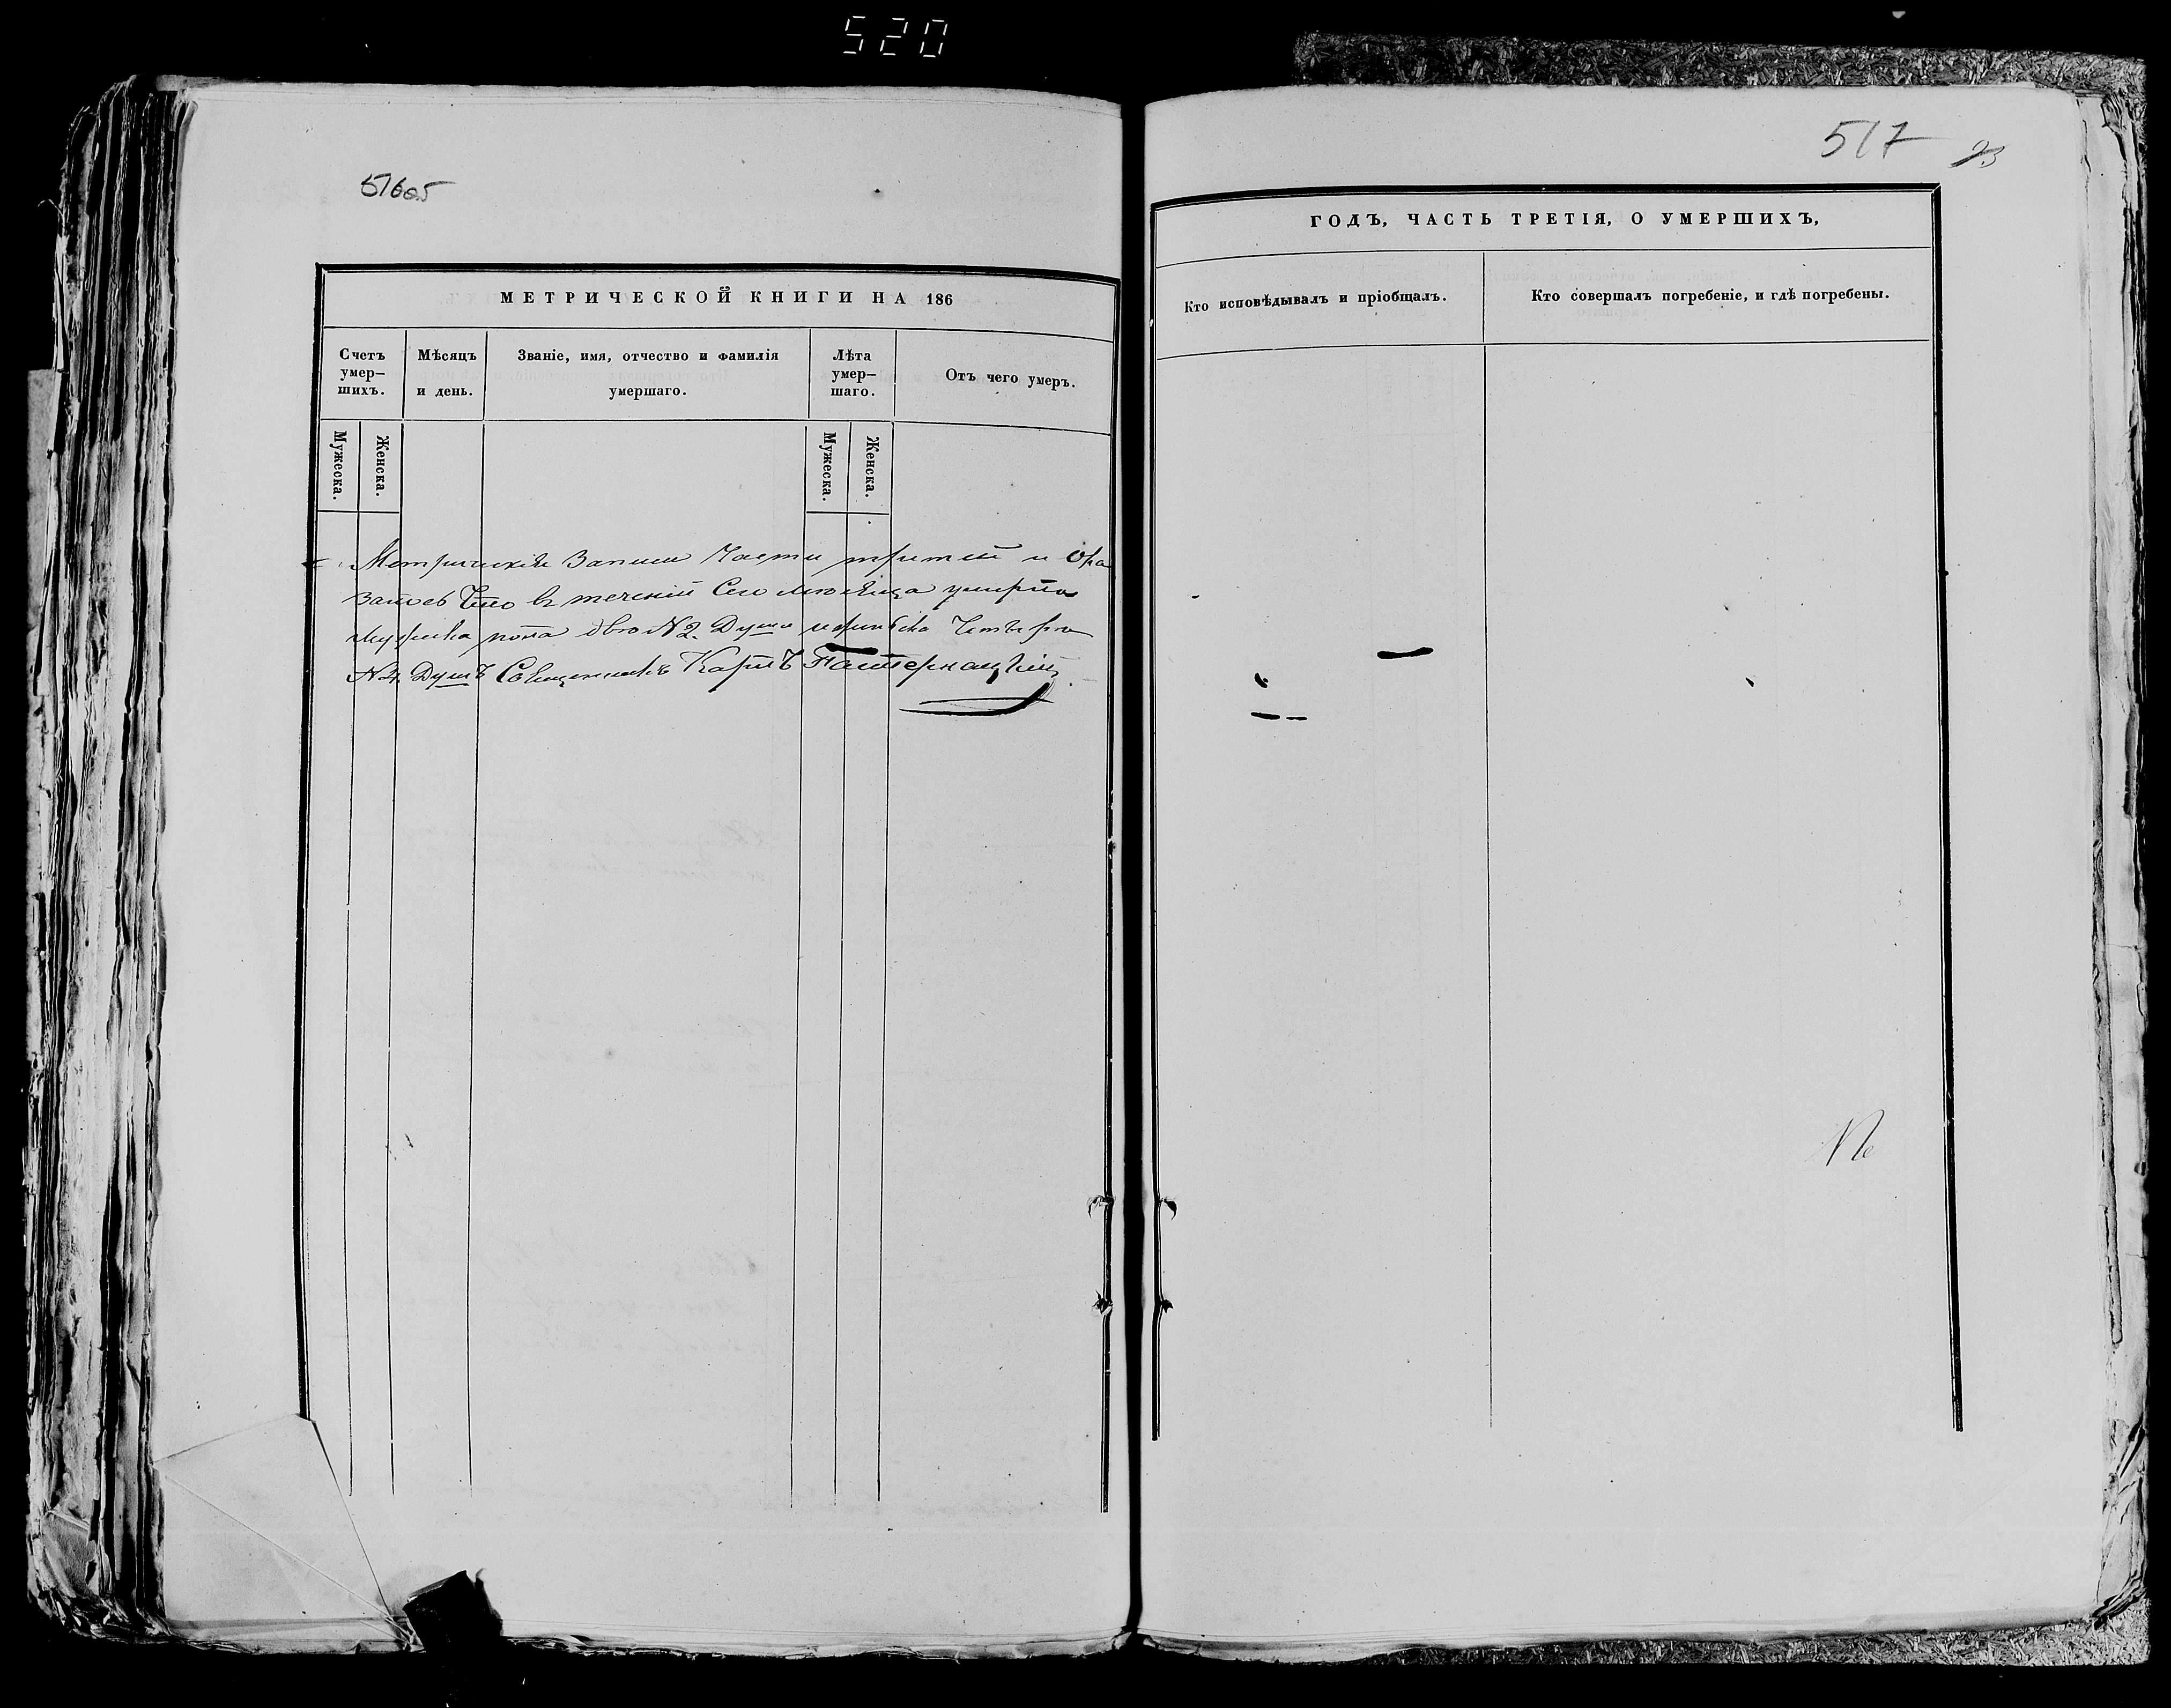 520
516об
МЕТРИЧЕСКОЙ КНИГИ НА 186
Счетъ умер-шихъ.
Мѣсяцъ и день.
Званіе, имя, отчество и фамилія умершаго.
Лѣта умер-шаго.
Отъ чего умеръ.
Мужеска.
Женска.
Мужеска.
Женска.
записи Части третей и
что въ течении сего месяца
пола двѣ №2. Души Четыре
№4. Душъ Священникъ Карпъ
517 23
ГОДЪ, ЧАСТЬ ТРЕТІЯ, О УМЕРШИХЪ,
Кто исповѣдывалъ и пріобщалъ.
Кто совершалъ погребеніе, и гдѣ погребены.